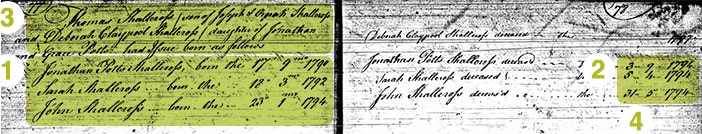 3
Thomas Shallcross (son of Joseph & Orpah Shallcross
and Deborah Claypool Shallcross (daughter of Jonathan
and Grace Potts) had issue born as follows
1
Jonathan Potts Shallcross, born the 17 9 mo 1790
Sarah Shallcross born the 18 3 mo 1792
John Shallcross born the 23 1 mo 1794
78
Deborah Claypool Shallcross deceased the
Jonathan Potts Shallcross deceased
2
3 9 1794
Sarah Shallcross deceased
5 4 1794
John Shallcross deceas'd the 31 5 1794
4